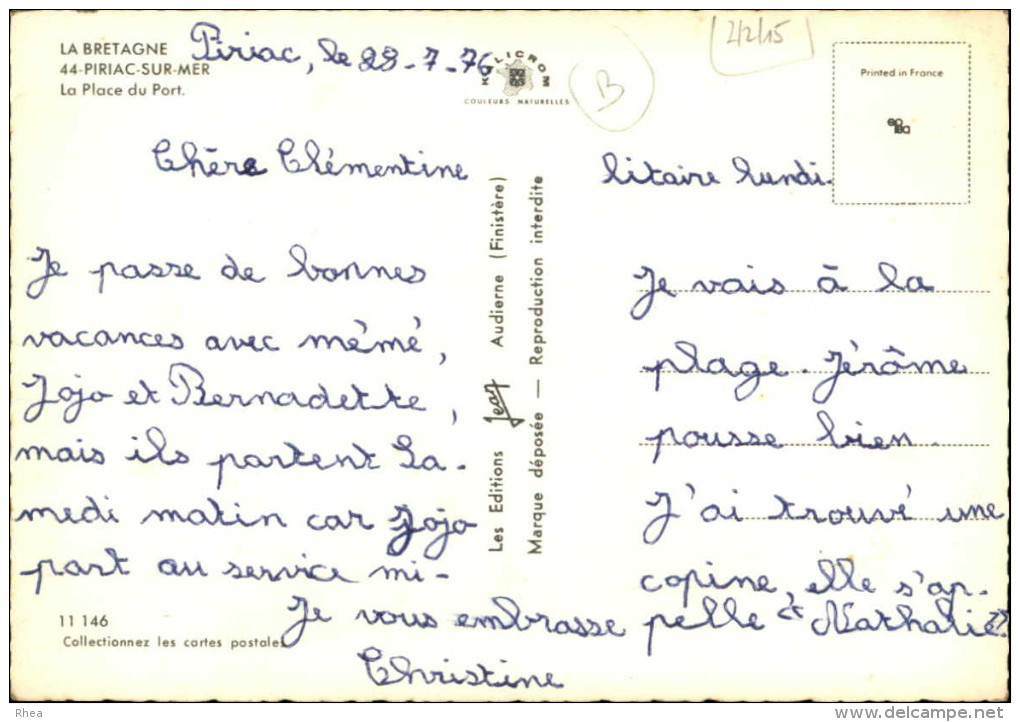 LA BRETAGNE
44-PIRIAC-SUR-MER
La Place du Port.
Piriac, le 28-7-76
KOLICROM
COULEURS NATURELLES
B
2/2/15
Printed in France
Chère Clémentine
Je passe de bonnes
vacances avec mémé,
Jojo et Bernadette,
mais ils partent Sa-
medi matin car Jojo
part au service mi-
litaire lundi.
Je vais à la
plage. Jérôme
pousse bien.
J'ai trouvé une
copine, elle s'ap-
pelle « Nathalie »
Je vous embrasse
Christine
Les Editions Jean Audierne (Finistère)
Marque déposée — Reproduction interdite
11 146
Collectionnez les cartes postales
Rhea
www.delcampe.net